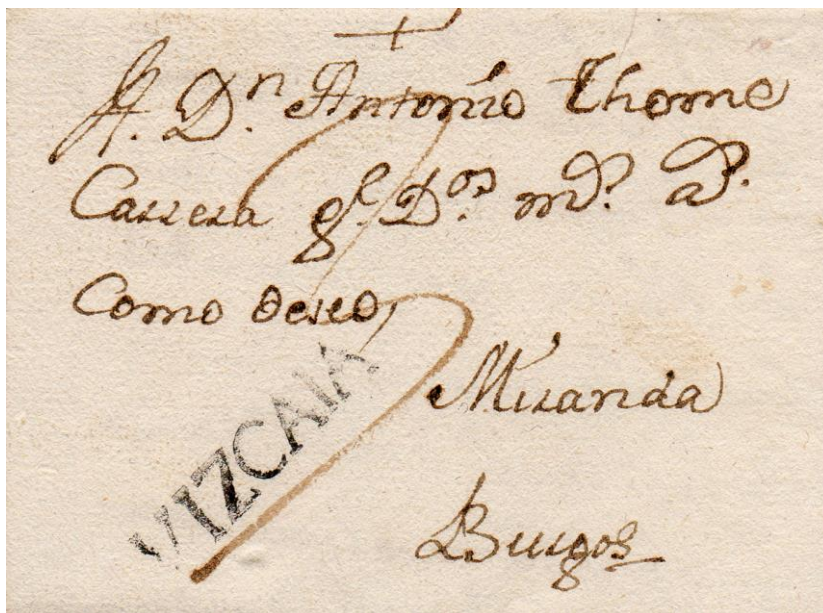 A. Dn. Antonio Thome
Carrera gE. Dos. ms. as.
Como deseo,
VIZCAIA
Miranda
Burgos